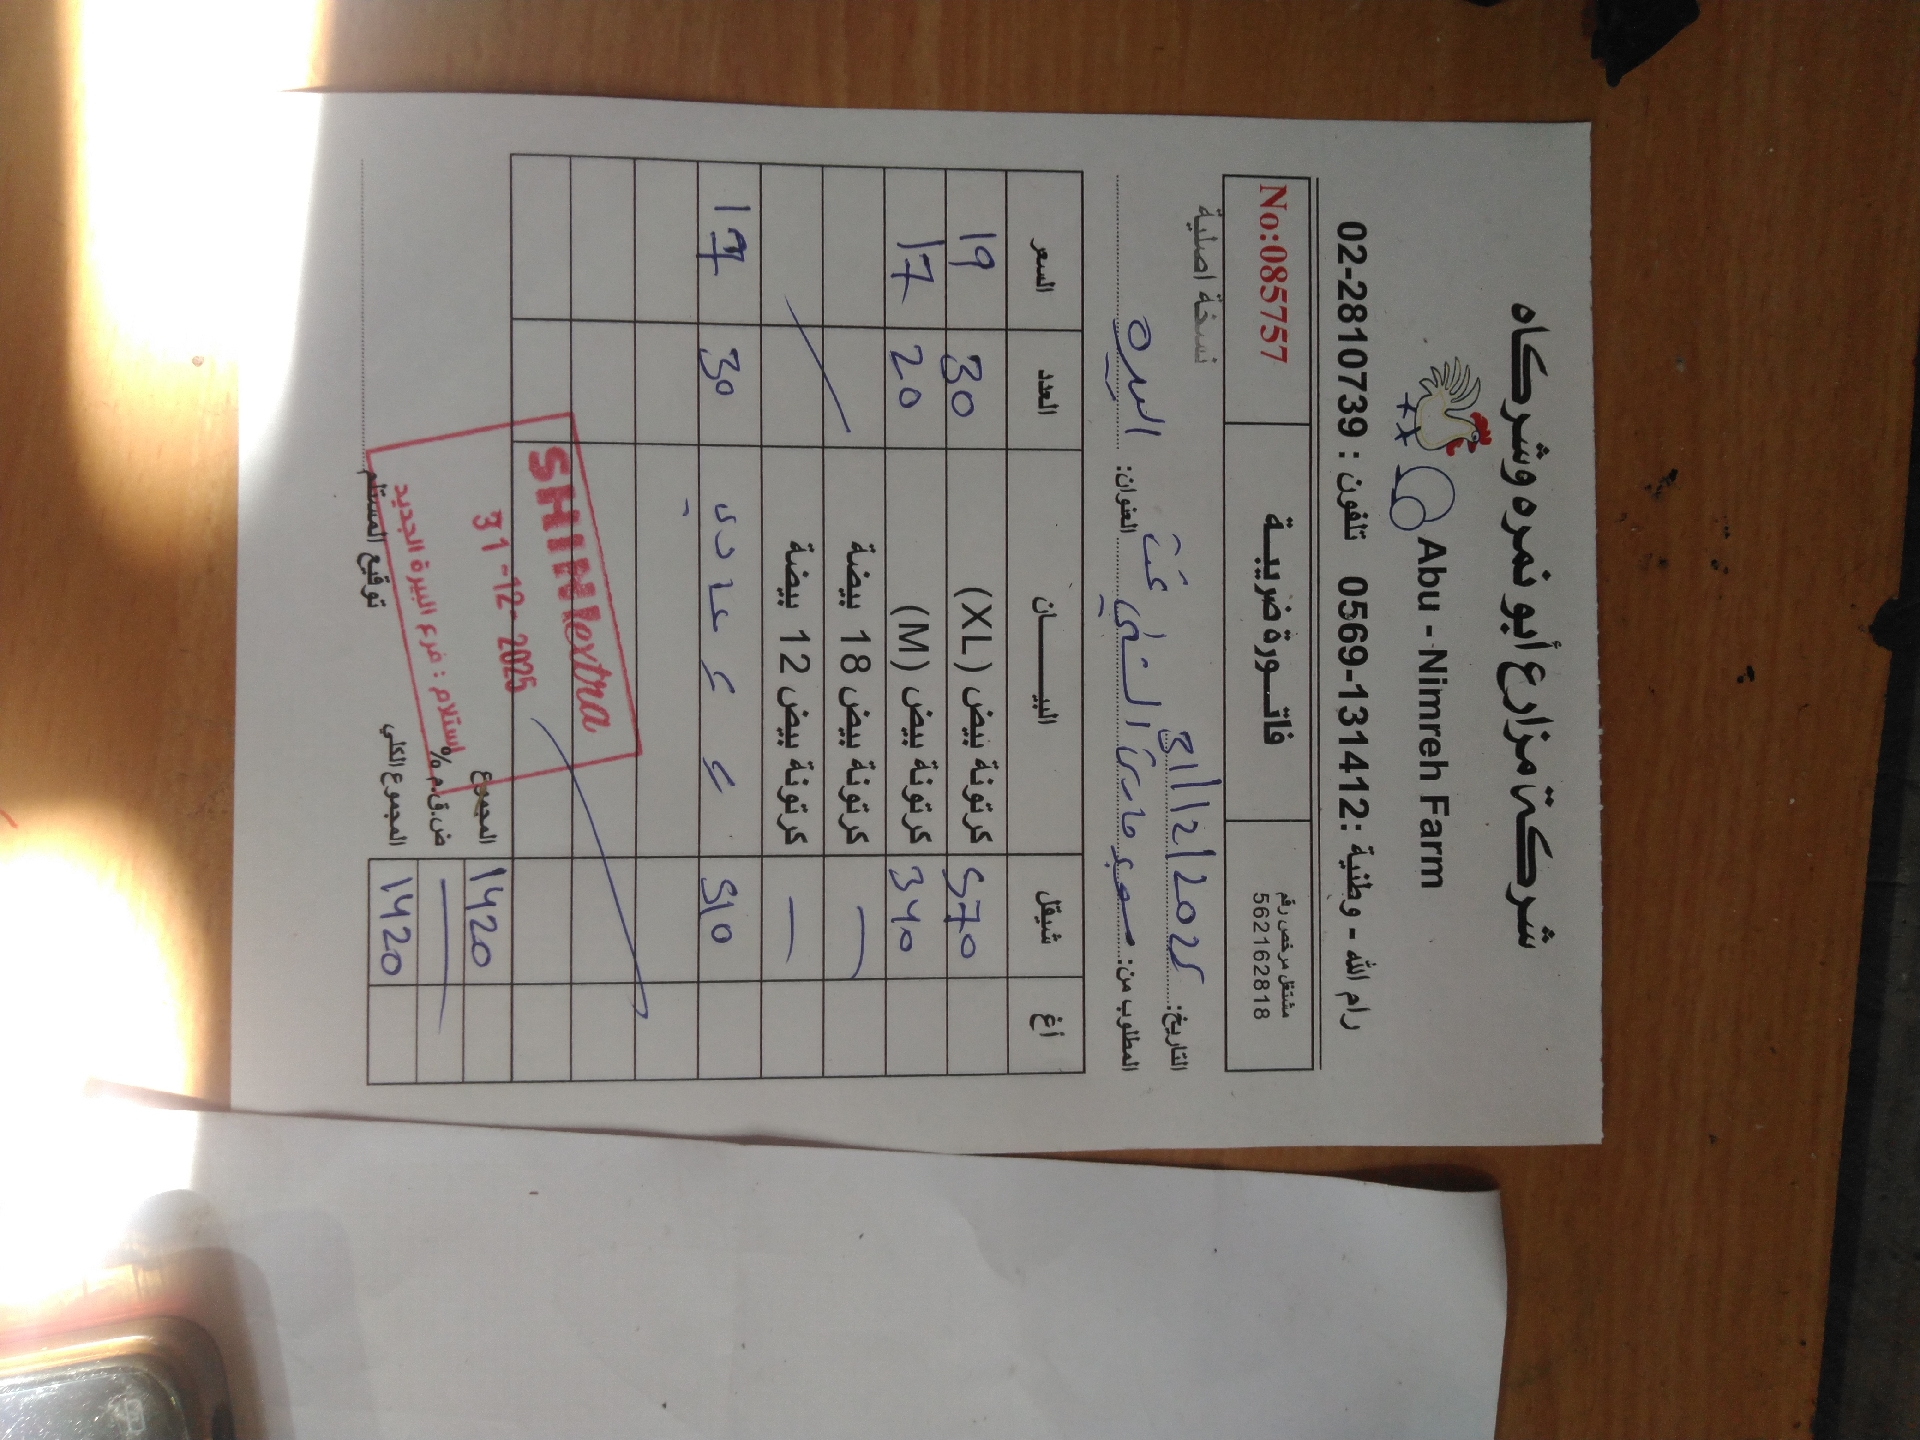 شركة مزارع أبو نمره وشركاه
Abu - Nimreh Farm
رام الله - وطنية : 0569-131412 تلفون : 02-2810739
مشتغل مرخص رقم
562162818
فاتـــورة ضريبـــة
No:085757
التاريخ: 31/12/2025
نسخة اصلية
المطلوب من:
العنوان: البيره
أغ شيقل البيـــــــان العدد السعر
570 كرتونة بيض (XL) 30 19
340 كرتونة بيض (M) 20 17
— كرتونة بيض 18 بيضة
— كرتونة بيض 12 بيضة
510 ء ء عادي 30 17
SHINI extra
31-12-2025
استلام : فرع البيرة الجديد
المجموع 1420
ض.ق.م% —
المجموع الكلي 1420
توقيع المستلم